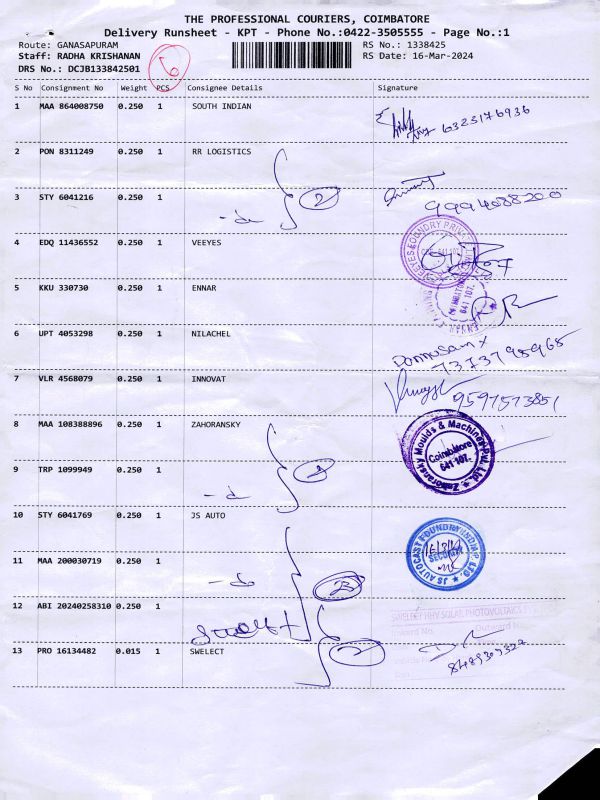 THE PROFESSIONAL COURIERS, COIMBATORE
Delivery Runsheet - KPT - Phone No.:0422-3505555 - Page No.:1
Route: GANASAPURAM RS No.: 1338425
Staff: RADHA KRISHANAN RS Date: 16-Mar-2024
DRS No.: DCJB133842501
6
S No Consignment No Weight PCS Consignee Details Signature
1 MAA 864008750 0.250 1 SOUTH INDIAN
6323176936
2 PON 8311249 0.250 1 RR LOGISTICS
3 STY 6041216 0.250 1 -do 2
4 EDQ 11436552 0.250 1 VEEYES
5 KKU 330730 0.250 1 ENNAR
6 UPT 4053298 0.250 1 NILACHEL
7373795965
7 VLR 4568079 0.250 1 INNOVAT
9597573851
8 MAA 108388896 0.250 1 ZAHORANSKY
Zahoransky Moulds & Machines Pvt. Ltd.
Coimbatore
641 107.
9 TRP 1099949 0.250 1
10 STY 6041769 0.250 1 JS AUTO
JS AUTOCAST FOUNDRY INDIA P. LTD.
SECURITY
11 MAA 200030719 0.250 1 -do
12 ABI 20240258310 0.250 1
SWELECT HHV SOLAR PHOTOVOLTAICS
13 PRO 16134482 0.015 1 SWELECT 2